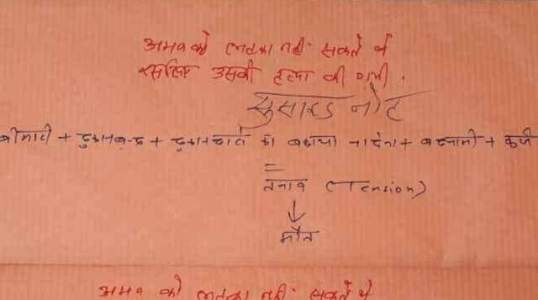 अमन को लटका नहीं सकते थे
इसलिए उसकी हत्या की गयी.
सुसाइड नोट
बीमारी + दुकान बन्द + दुकानदारों का बकाया न देना + बदनामी + कर्ज
=
तनाव (Tension)
↓
मौत
अमन को लटका नहीं सकते थे